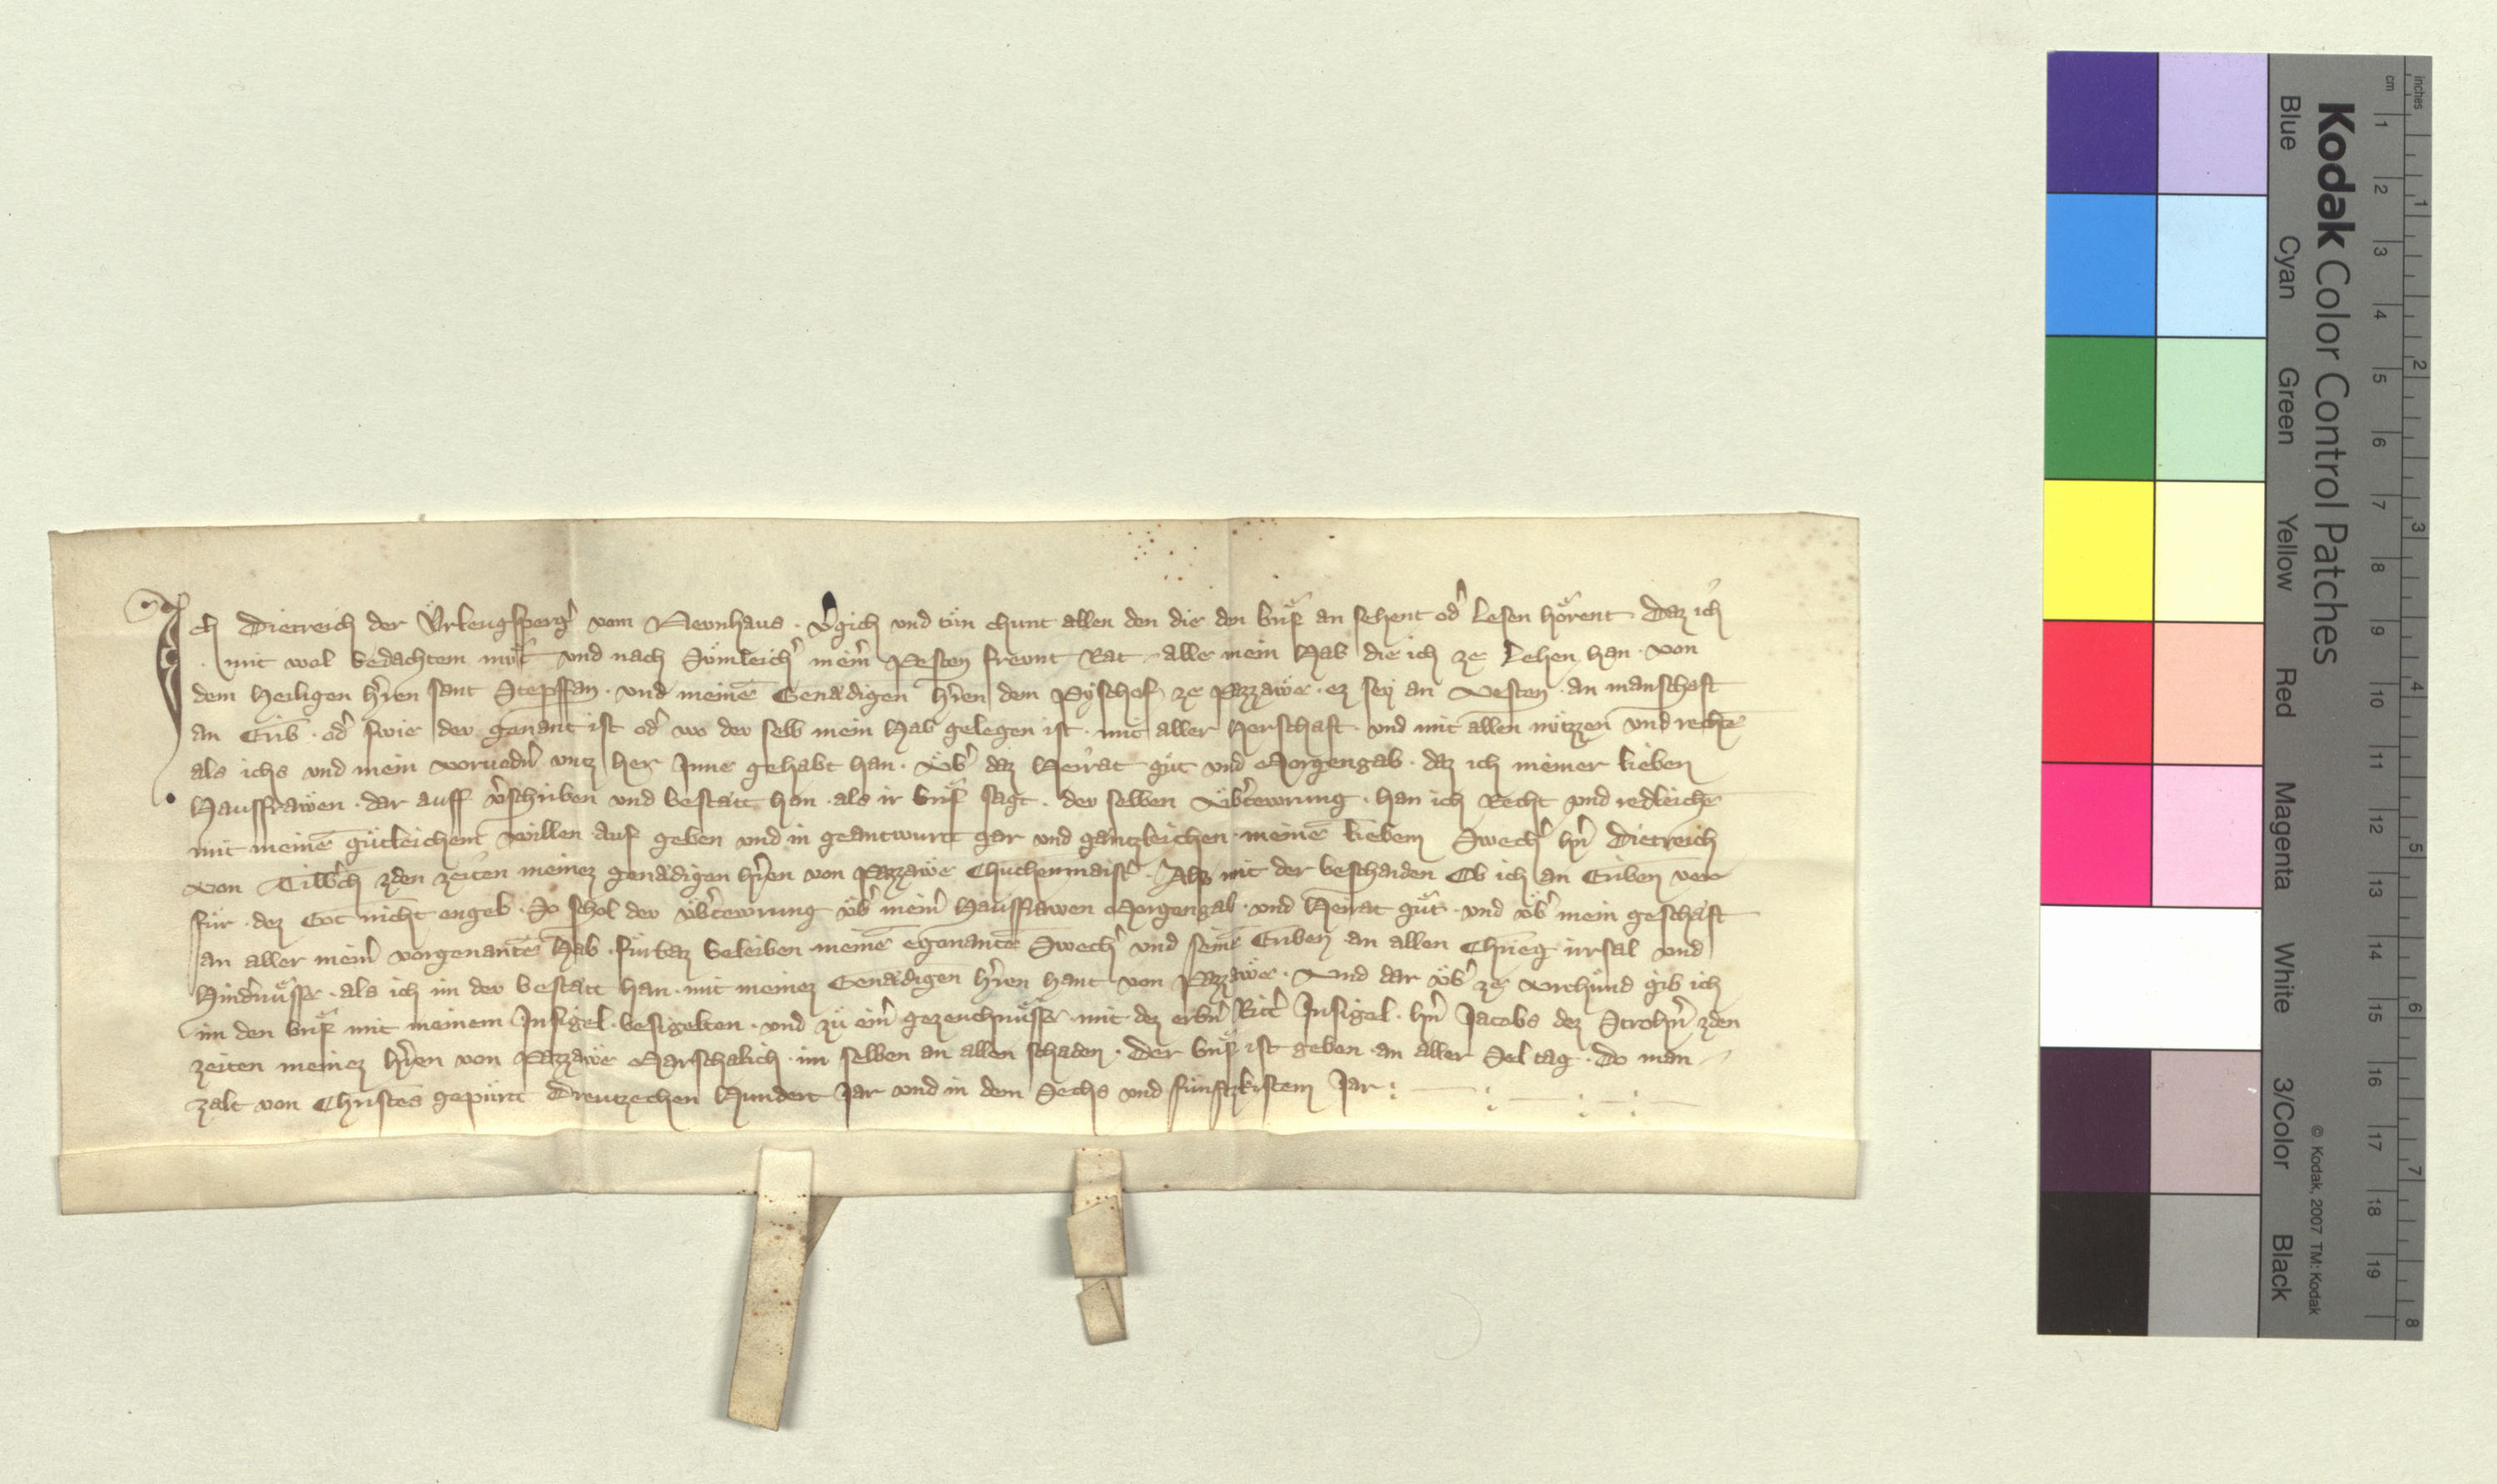 Ich Dietreich der Ürleugsperg' vom Newnhaus · v'gich vnd tün chunt allen den die den brif an sehent od' Lesen hörent Daz ich
mit wol bedachtem müt vnd nach Sömleich' mein' Pesten frevnt Rat alle mein Hab die ich ze Lehen han · von
dem Heiligen h'ren sant Steffan · vnd meinē Genädigen h'ren dem Pyschof ze Pazzawe · ez sey an Vesten · an manschaft
an Erib · od' swie der genant ist od' wo der selb mein Hab gelegen ist · mit aller Herschaft · vnd mit allen nützzen vnd rechtē
als ichs vnd mein vorvodn' vntz her Inne gehabt han · Vb' daz Heirat güt vnd Morgengab · daz ich meiner lieben
Hausfrawen · dar auff v'schriben vnd bestätt han · als ir brif sagt · der selben Vb'tewrung · han ich Recht vnd redleichē
mit meinē gütleichem willen auf geben vnd in geantwurtt gar vnd gäntzleichen · meinē liebem Swech' h'n Dietreich
von zden zeiten meinez genädigen h'ren von Pazzawe Chuchenmaist' · Also mit der beschaiden Ob ich an Eriben ver
für · dez Got nicht engeb · So schol der vb'tewrung vb' mein' Hausfrawen Morgengab · vnd Heirat güt · vnd vb' mein geschäft
an aller mein' vorgenantē Hab · fürbaz beleiben meinē egenantē Swech' vnd seinē Eriben an allen Chrieg irrsal vnd
Hind'nüsse · als ich im der bestätt han · mit meinez Genädigen h'ren hant von Pazzawe · Vnd dar vb' ze vrchünd gib ich
im den brif mit meinem Insigel · besigelten · vnd zü ein' gezeuchnüsse mit dez erb'n Ritt' Insigel · h'n Jacobs dez Strohn' zden
zeiten meinez h'ren von Pazzawe Marschalich · im selben an allen schaden · Der brif ist geben · an aller Sel tag · Do man
zalt von Christes gepürtt Dreutzechen Hundert Jar vnd in dem Sechs vnd fünftzkistem Jar :
Kodak Color Control Patches
Blue Cyan Green Yellow Red Magenta White 3/Color Black
© Kodak, 2007 TM: Kodak
cm 1 2 3 4 5 6 7 8 9 10 11 12 13 14 15 16 17 18 19
inches 1 2 3 4 5 6 7 8